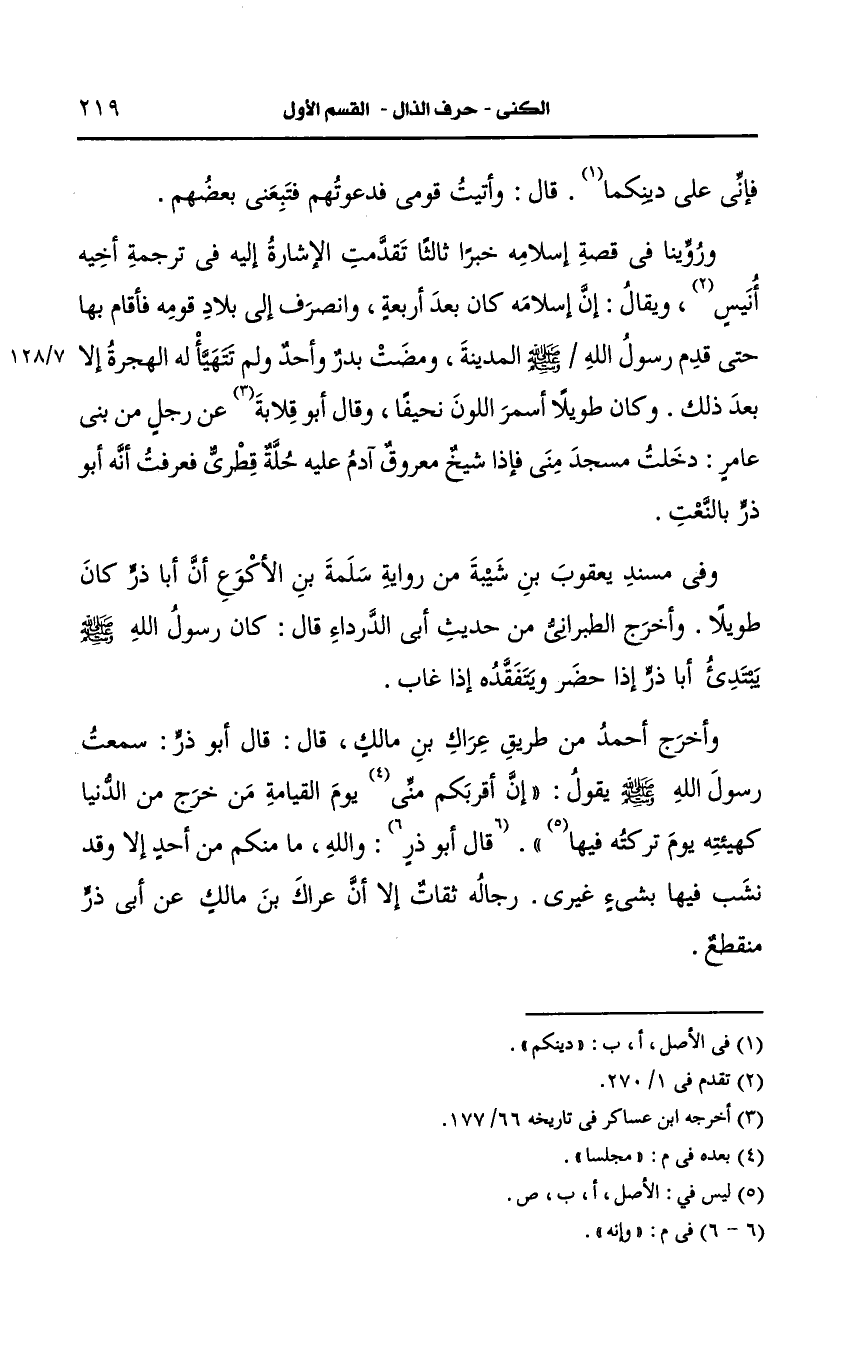 الكنى - حرف الذال - القسم الأول ٢١٩
فإنِّى على دينِكما(١) . قال : وأتيتُ قومى فدعوتُهم فتَبِعَنى بعضُهم .
ورُوِّينا فى قصةِ إسلامِه خبرًا ثالثًا تَقدَّمتِ الإشارةُ إليه فى ترجمةِ أخِيه
أُنَيسٍ(٢) ، ويقالُ : إنَّ إسلامَه كان بعدَ أربعةٍ ، وانصرَف إلى بلادِ قومِه فأقام بها
حتى قدِم رسولُ اللهِ / ﷺ المدينةَ ، ومضَتْ بدرٌ وأحدٌ ولم تَتَهَيَّأْ له الهجرةُ إلا ١٢٨/٧
بعدَ ذلك . وكان طويلًا أسمرَ اللونَ نحيفًا ، وقال أبو قِلابةَ(٣) عن رجلٍ من بنى
عامرٍ : دخَلتُ مسجدَ مِنَى فإذا شيخٌ معروقٌ آدمُ عليه حُلَّةٌ قِطْرىٌّ فعرفتُ أنَّه أبو
ذرٍّ بالنَّعْتِ .
وفى مسندِ يعقوبَ بنِ شَيْبةَ من روايةِ سَلَمةَ بنِ الأكْوَعِ أنَّ أبا ذرٍّ كانَ
طويلًا . وأخرَج الطبرانىُّ من حديثِ أبى الدَّرداءِ قال : كان رسولُ اللهِ ﷺ
يَبْتَدِئُ أبا ذرٍّ إذا حضَر ويَتَفَقَّدُه إذا غاب .
وأخرَج أحمدُ من طريقِ عِرَاكِ بنِ مالكٍ ، قال : قال أبو ذرٍّ : سمعتُ
رسولَ اللهِ ﷺ يقولُ : «إنَّ أقربَكم منِّى(٤) يومَ القيامةِ مَن خرَج من الدُّنيا
كهيئتِه يومَ تركتُه فيها(٥)» . (٦قال أبو ذرٍ٦) : واللهِ ، ما منكم من أحدٍ إلا وقد
نشَب فيها بشىءٍ غيرى . رجالُه ثقاتٌ إلا أنَّ عراكَ بنَ مالكٍ عن أبى ذرٍّ
منقطعٌ .
(١) فى الأصل ، أ ، ب : «دينكم» .
(٢) تقدم فى ١/ ٢٧٠.
(٣) أخرجه ابن عساكر فى تاريخه ٦٦/ ١٧٧.
(٤) بعده فى م : «مجلسا» .
(٥) ليس في : الأصل ، أ ، ب ، ص .
(٦ - ٦) فى م : «وإنه» .